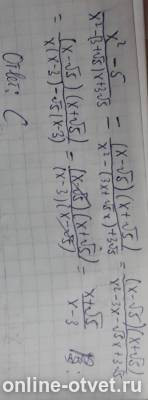 x² - 5 / x² - (3 + √5)x + 3√5 = (x - √5)(x + √5) / x² - (3x + √5x) + 3√5 = (x - √5)(x + √5) / x² - 3x - √5x + 3√5
= (x - √5)(x + √5) / x(x - 3) - √5(x - 3) = (x - √5)(x + √5) / (x - 3)(x - √5) = x + √5 / x - 3
Ответ: C
online-otvet.ru